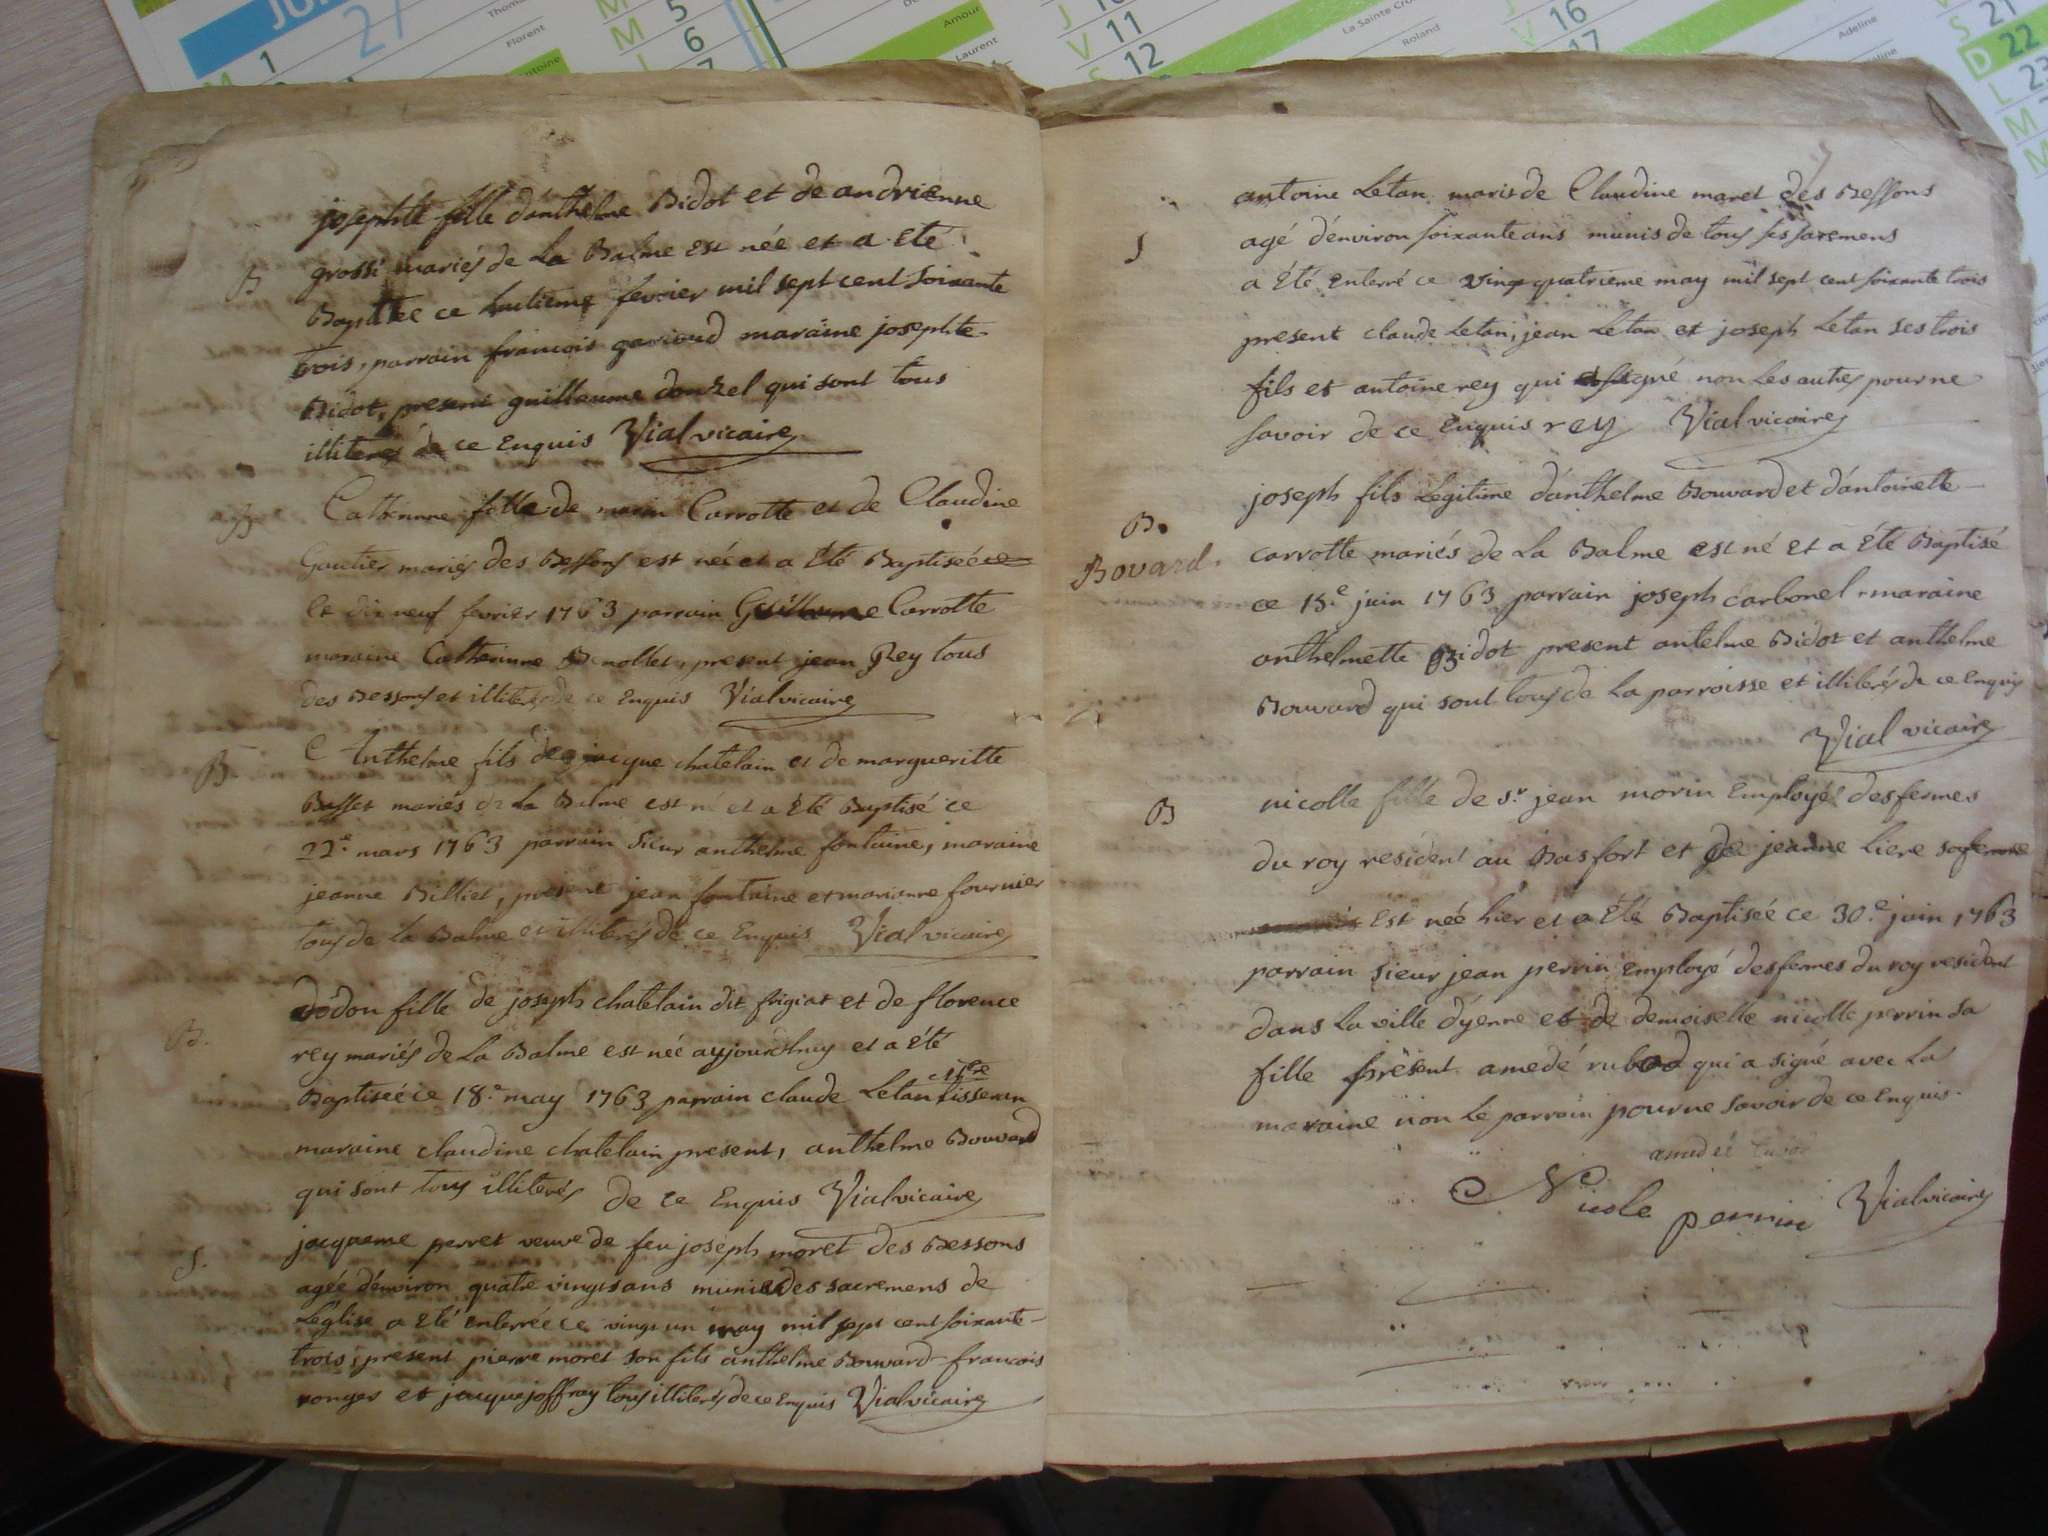 JU
27
M 1
Thom
Florent
Antoine
M
M 5
J 6
7
Amour
Laurent
J 10
V 11
S 12
La Sainte Cro
Roland
V 16
17
Adeline
S 21
D 22
L 23
M
M
josephte fille d'anthelme Bidot et de andrienne
B grossi mariés de La Balme est née et a été
Baptisée ce huitieme fevrier mil sept cent soixante
trois, parrain francois gavioud maraine josephte
Bidot, present guillaume donzel qui sont tous
illiterés de ce Enquis Vial vicaire
B Catherinne fille de marin Carrotte et de Claudine
Gautier mariés des Bessons est née et a été Baptisée ce
le dix neuf fevrier 1763 parrain Guillaume Carrotte
maraine Catherinne Benollet, present jean Rey tous
des Bessons et illiterés de ce Enquis Vial vicaire
B. Anthelme fils de jacque chatelain et de margueritte
Basset mariés de La Balme est né et a été Baptisé ce
22.e mars 1763 parrain Sieur anthelme fontaine, maraine
jeanne Billiet, présent jean fontaine et marianne fournier
tous de la Balme et illiterés de ce Enquis Vial vicaire
B. dodon fille de joseph chatelain dit frigiat et de florence
rey mariés de La Balme est née aujourdhuy et a été
Baptisée ce 18.e may 1763 parrain claude Letan tisseran
maraine claudine chatelain present, anthelme Bouvard
qui sont tous illiterés de ce Enquis Vial vicaire
S. jacqueme perret veuve de feu joséph moret des Bessons
agée d'environ quatre vingts ans munie des sacremens de
L'église a été enterrée ce vingt un may mil sept cent soixante
trois, présent pierre moret son fils anthelme Bouvard francois
ronger et jacque joffray tous illiterés de ce Enquis Vial vicaire
antoine Letan maris de Claudine maret des Bessons
S agé d'environ soixante ans munis de tous ses sacremens
a été enterré ce vingt quatrieme may mil sept cent soixante trois
present claude Letan, jean Letan et joseph Letan ses trois
fils et antoine rey qui a signé non les autres pour ne
savoir de ce Enquis rey Vial vicaire
joseph fils Legitime d'anthelme Bouvard et d'antoinette
B.
Bovard. carrotte mariés de La Balme est né et a été Baptisé
ce 15.e juin 1763 parrain joseph carbonel maraine
anthelmette Bidot present antelme Bidot et anthelme
Bouvard qui sont tous de la parroisse et illiterés de ce Enquis
Vial vicaire
B nicolle fille de s.r jean morin Employé des fermes
du roy resident au Bas fort et de jeanne liere sa femme
Est née hier et a été Baptisée ce 30.e juin 1763
parrain sieur jean perrin Employé des fermes du roy resident
dans La ville d'yenne et de demoiselle nicolle perrin sa
fille présent amedé rubod qui a signé avec La
maraine non le parrain pour ne savoir de ce enquis.
amedée rubod
Nicole perrin Vial vicaire